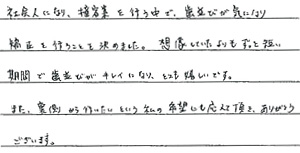 社会人になり、接客業を行う中で、歯並びが気になり
矯正を行うことを決めました。想像していたよりもずっと短い
期間で歯並びがキレイになり、とても嬉しいです。
また、裏側から行いたいという私の希望にも応えて頂き、ありがとう
ございます。